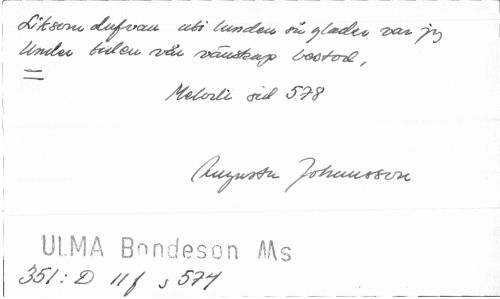 Liksom dufvan uti lunden så glader var jg
Under tiden vår vänskap bestod,
=
Melodi sid 578
Augusta Johansson
ULMA Bondeson Ms
351:D 11f s 574